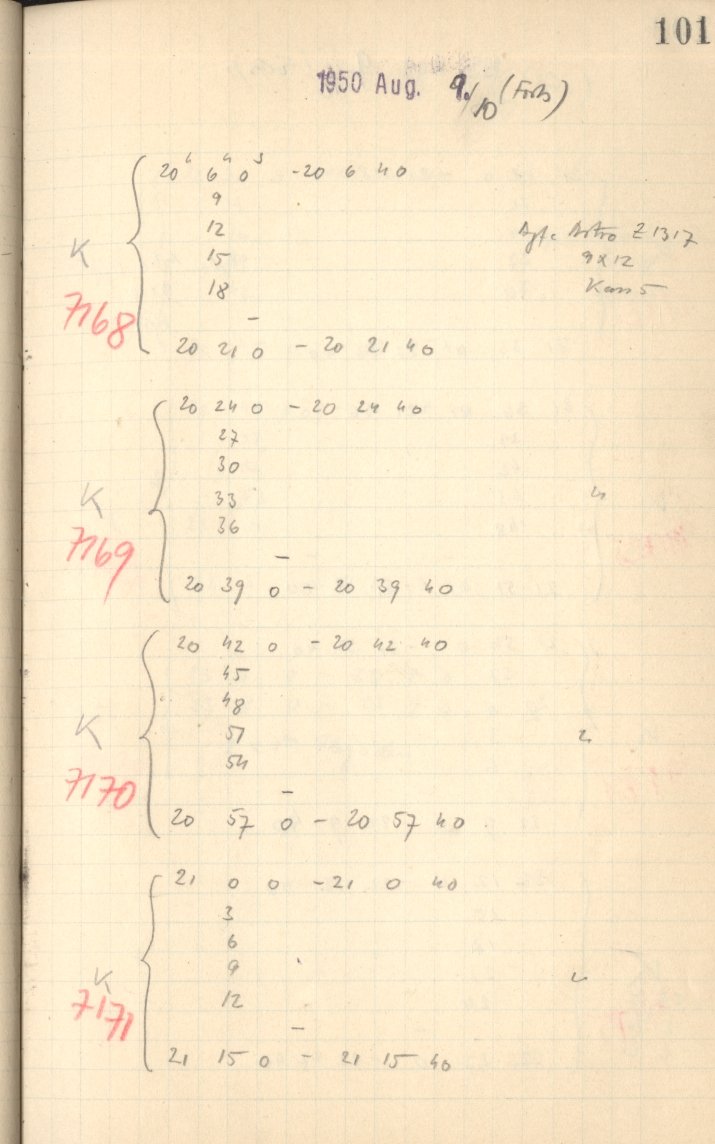 101
1950 Aug. 9./10 (Forts)
20 6 0 - 20 6 40
9
12
Agfa Astro Z 1317
15
9x12
18
Kass 5
K
7168
-
20 21 0 - 20 21 40
20 24 0 - 20 24 40
27
30
33
"
36
K
7169
-
20 39 0 - 20 39 40
20 42 0 - 20 42 40
45
48
51
"
54
K
7170
-
20 57 0 - 20 57 40
21 0 0 - 21 0 40
3
6
9
"
12
K
7171
-
21 15 0 - 21 15 40